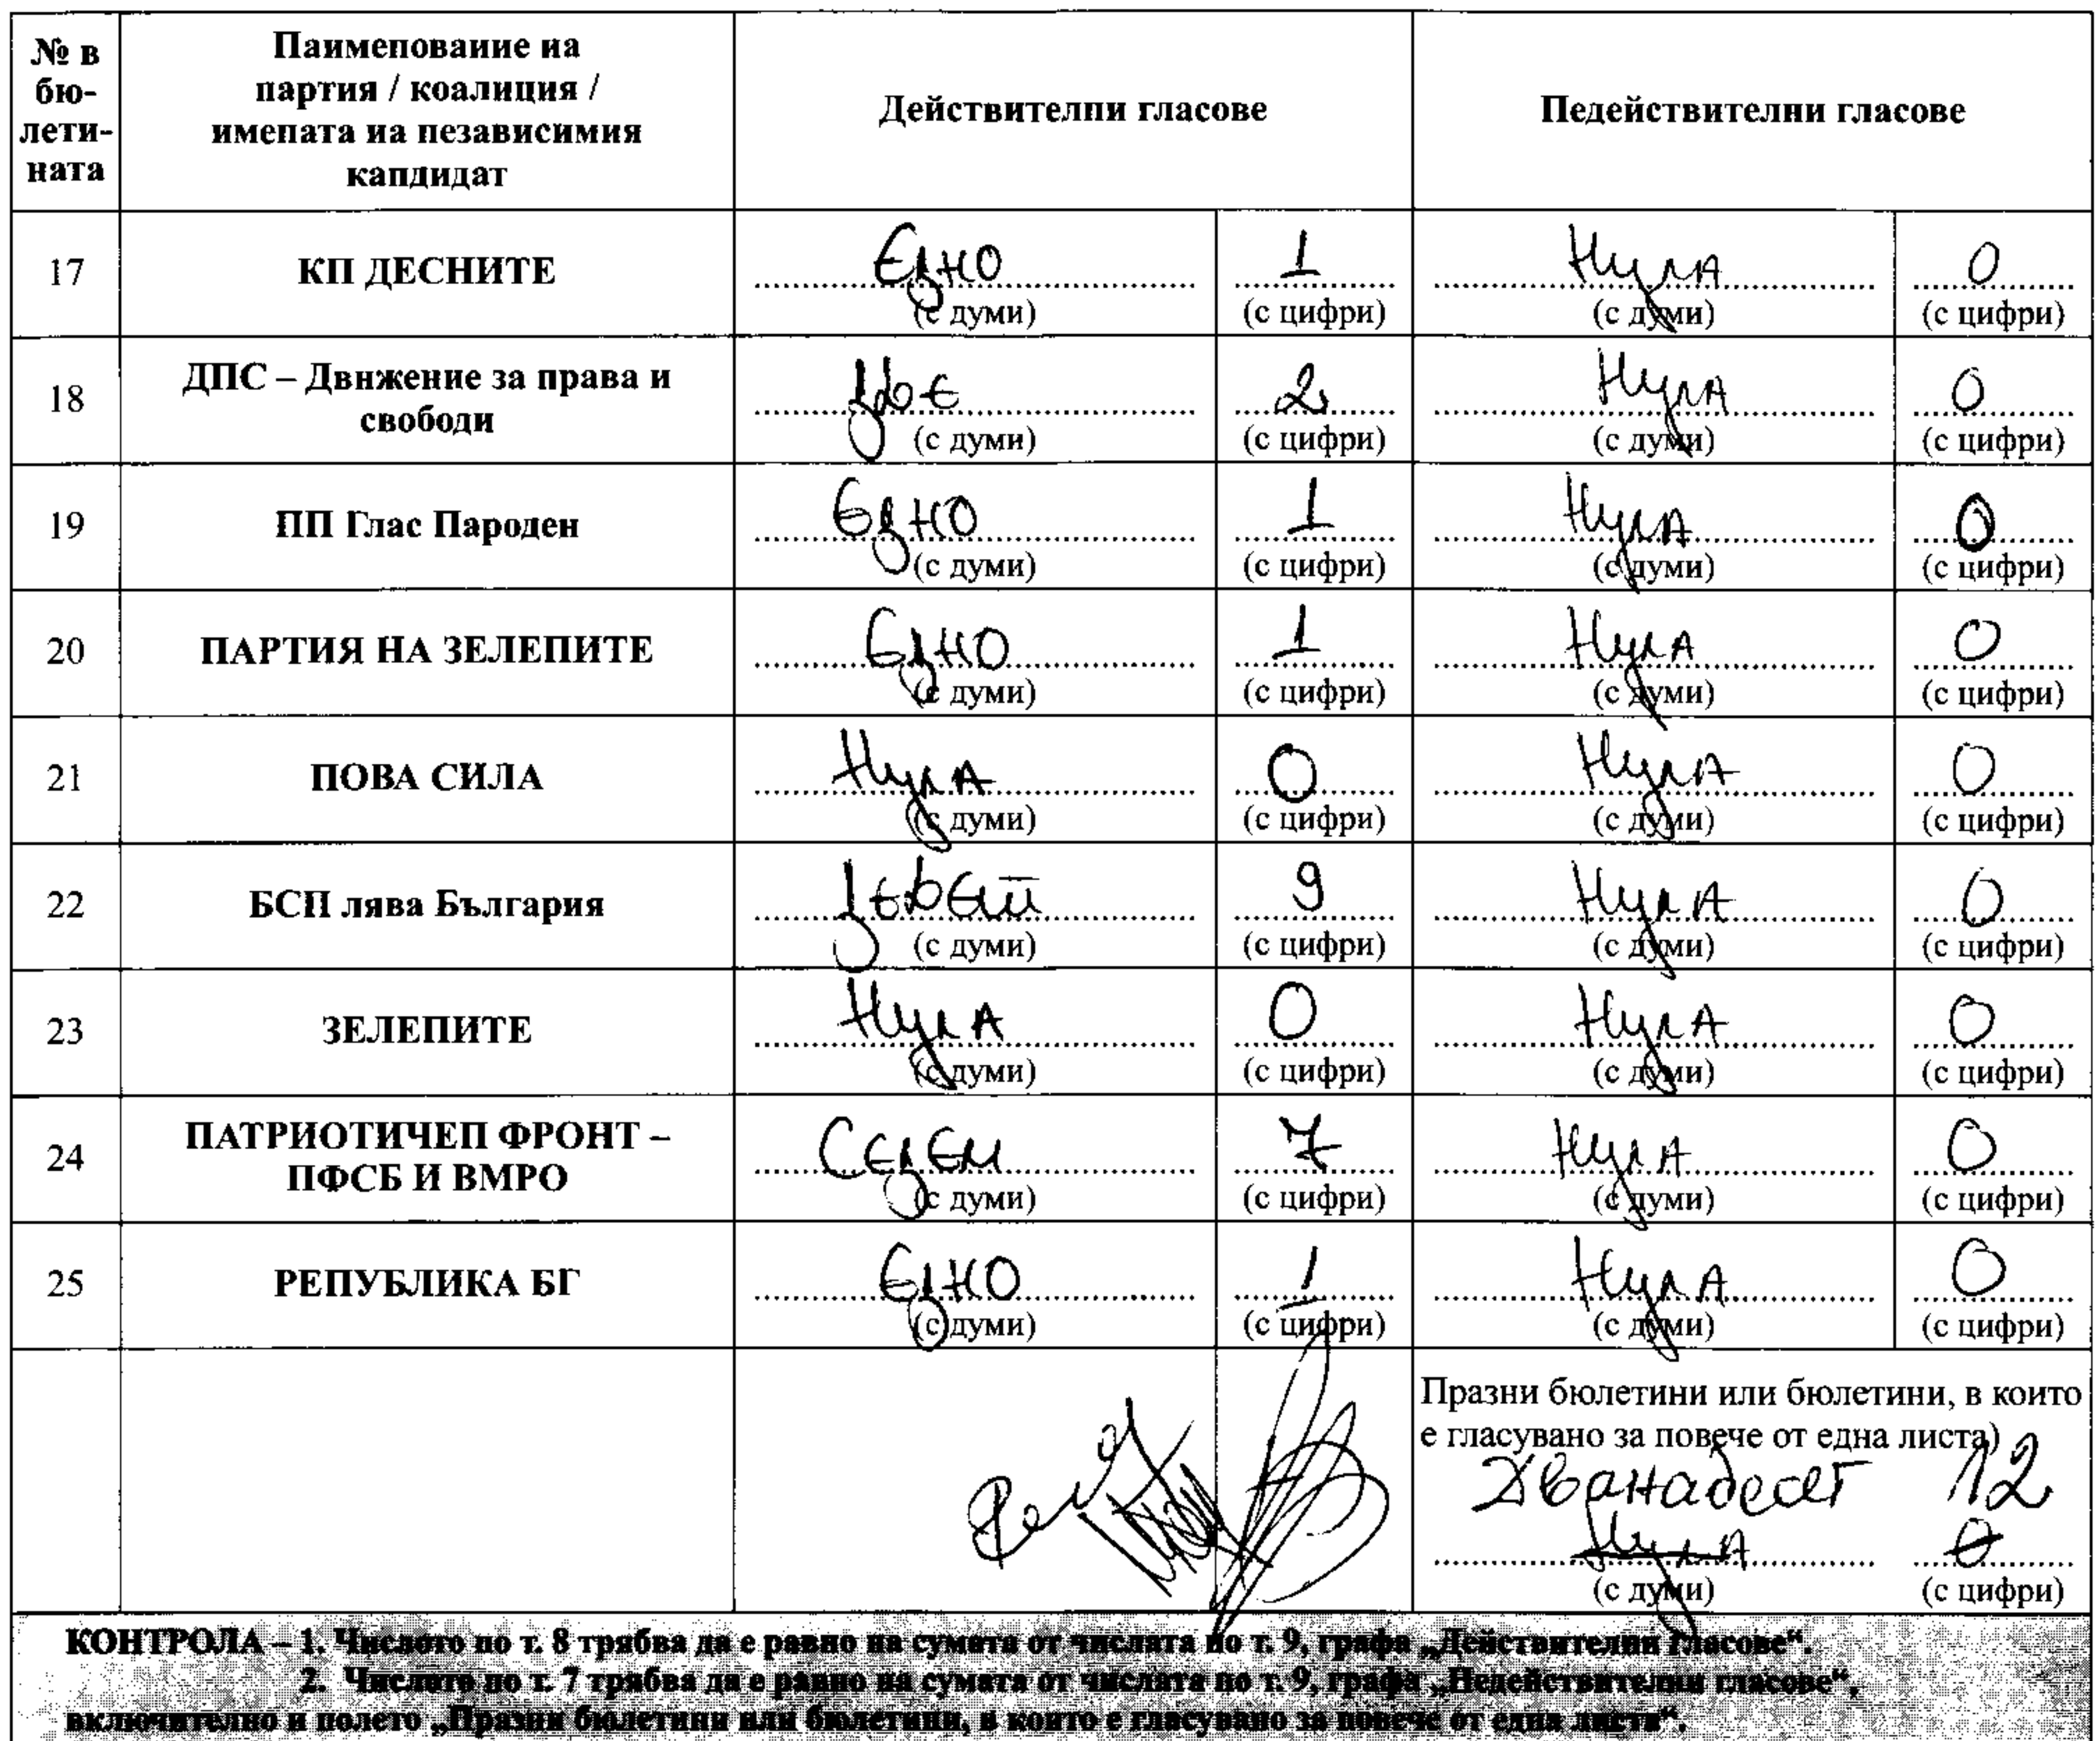 № в
бю-
лети-
ната
Паименование на
партия / коалиция /
имепата на пезависимия
капдидат
Действителпи гласове
Педействителни гласове
17 КП ДЕСНИТЕ Едно 1 Нула 0
(с думи) (с цифри) (с думи) (с цифри)
18 ДПС – Двнжение за права и
свободи Две 2 Нула 0
(с думи) (с цифри) (с думи) (с цифри)
19 ПП Глас Пароден Едно 1 Нула 0
(с думи) (с цифри) (с думи) (с цифри)
20 ПАРТИЯ НА ЗЕЛЕПИТЕ Едно 1 Нула 0
(с думи) (с цифри) (с думи) (с цифри)
21 ПОВА СИЛА Нула 0 Нула 0
(с думи) (с цифри) (с думи) (с цифри)
22 БСП лява България Девет 9 Нула 0
(с думи) (с цифри) (с думи) (с цифри)
23 ЗЕЛЕПИТЕ Нула 0 Нула 0
(с думи) (с цифри) (с думи) (с цифри)
24 ПАТРИОТИЧЕП ФРОНТ –
ПФСБ И ВМРО Седем 7 Нула 0
(с думи) (с цифри) (с думи) (с цифри)
25 РЕПУБЛИКА БГ Едно 1 Нула 0
(с думи) (с цифри) (с думи) (с цифри)
Празни бюлетини или бюлетини, в които
е гласувано за повече от една листа)
Дванадесет 12
Нула 0
(с думи) (с цифри)
КОНТРОЛА – 1. Числото по т. 8 трябва да е равно на сумата от числата по т. 9, графа „Действителни гласове“.
2. Числото по т. 7 трябва да е равно на сумата от числата по т. 9, графа „Недействителни гласове“,
включително и полето „Празни бюлетини или бюлетини, в които е гласувано за повече от една листа“.